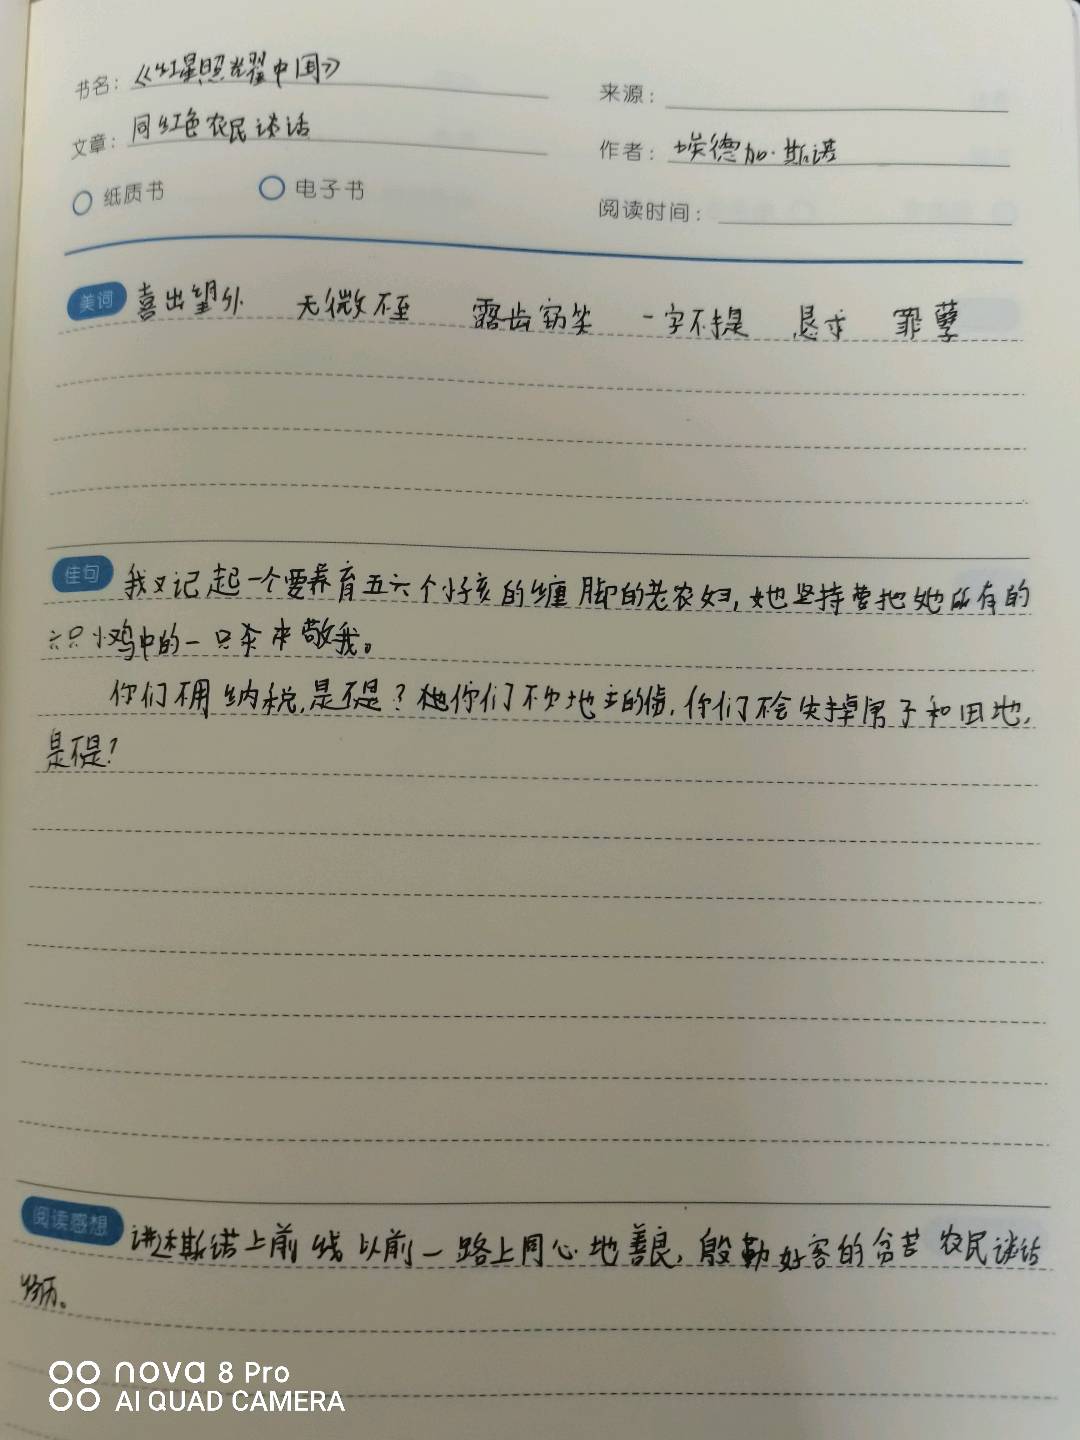 书名：《红星照耀中国》
来源：
文章：同红色农民谈话
作者：埃德加·斯诺
纸质书 电子书
阅读时间：
美词 喜出望外 无微不至 露齿窃笑 一字不提 恳求 罪孽
佳句 我又记起一个要养育五六个小孩的缠脚的老农妇，她坚持要把她所有的
六只小鸡中的一只杀来敬我。
你们不用纳税，是不是？你们不欠地主的债，你们不会失掉房子和田地，
是不是？
阅读感想 讲述斯诺上前线以前一路上同心地善良，殷勤好客的贫苦农民谈话
经历。
nova 8 Pro
AI QUAD CAMERA